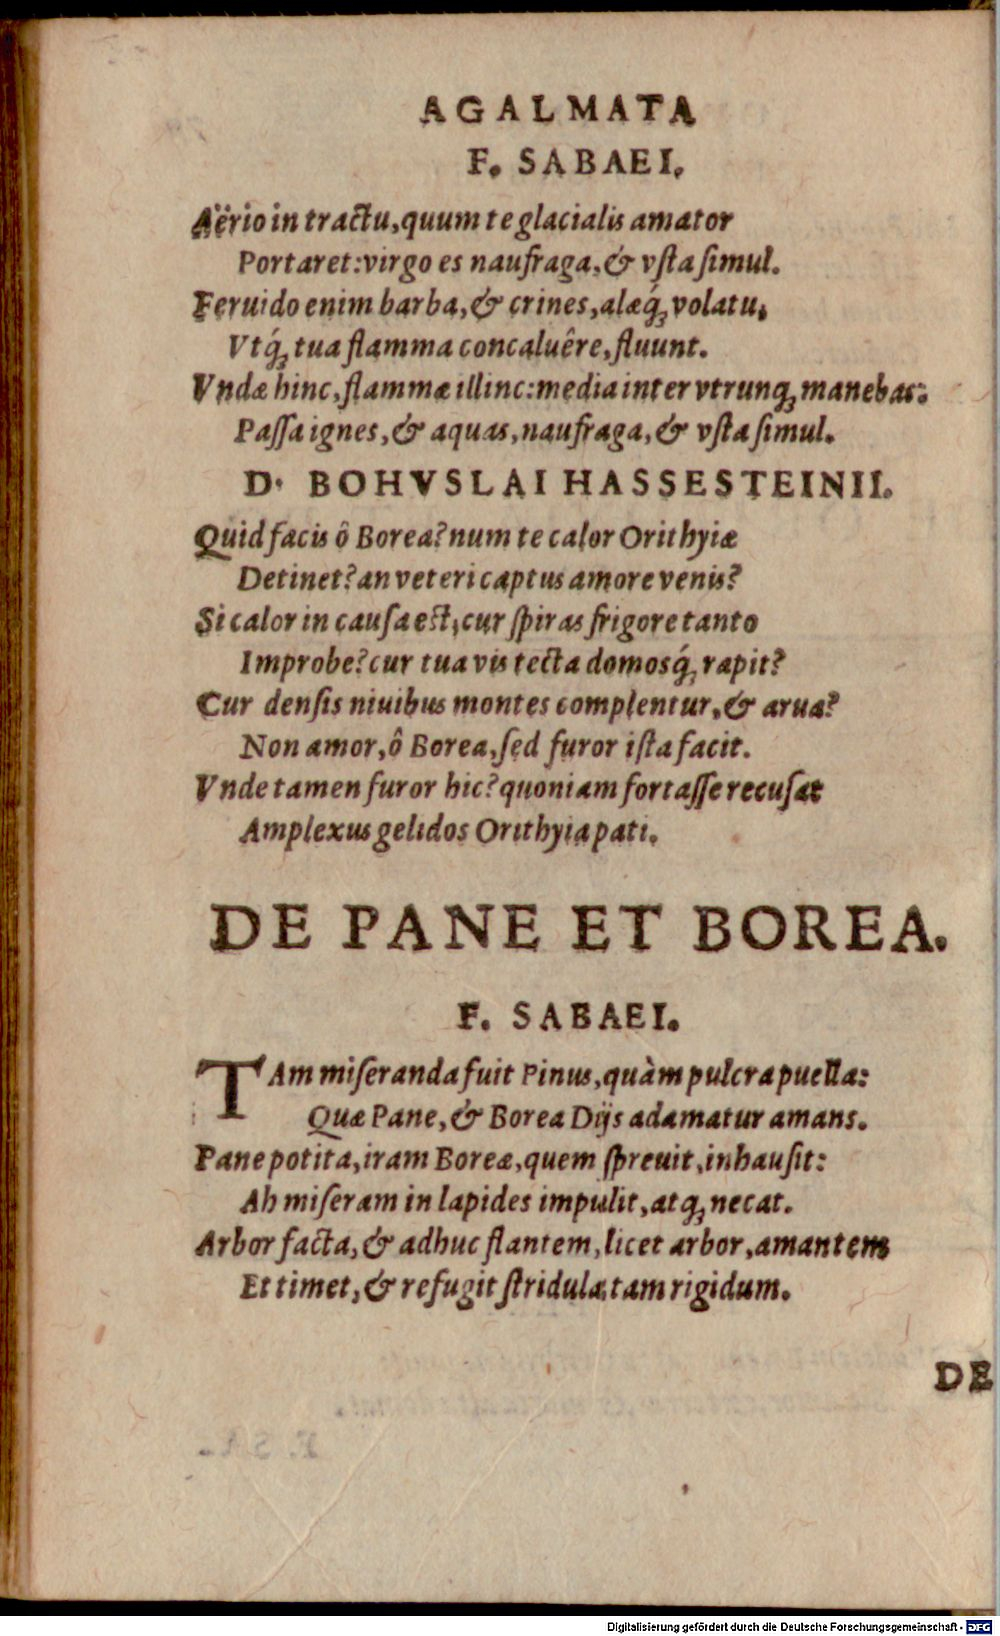 AGALMATA
F. SABAEI.
Aërio in tractu, quum te glacialis amator
Portaret: virgo es naufraga, & vſta ſimul.
Feruido enim barba, & crines, alæq́; volatu,
Vtq́; tua flamma concaluêre, fluunt.
Vndæ hinc, flammæ illinc: media inter vtrunq; manebas:
Paſſa ignes, & aquas, naufraga, & vſta ſimul.
D. BOHVSLAI HASSESTEINII.
Quid facis ô Borea? num te calor Orithyiæ
Detinet? an veteri captus amore venis?
Si calor in cauſa est, cur ſpiras frigore tanto
Improbe? cur tua vis tecta domosq́; rapit?
Cur denſis niuibus montes complentur, & arua?
Non amor, ô Borea, ſed furor iſta facit.
Vnde tamen furor hic? quoniam fortaſſe recuſat
Amplexus gelidos Orithyia pati.
DE PANE ET BOREA.
F. SABAEI.
TAm miſeranda fuit Pinus, quàm pulcra puella:
Quæ Pane, & Borea Dijs adamatur amans.
Pane potita, iram Boreæ, quem ſpreuit, inhauſit:
Ah miſeram in lapides impulit, atq; necat.
Arbor facta, & adhuc flantem, licet arbor, amantem
Et timet, & refugit ſtridula, tam rigidum.
DE
Digitalisierung gefördert durch die Deutsche Forschungsgemeinschaft - DFG